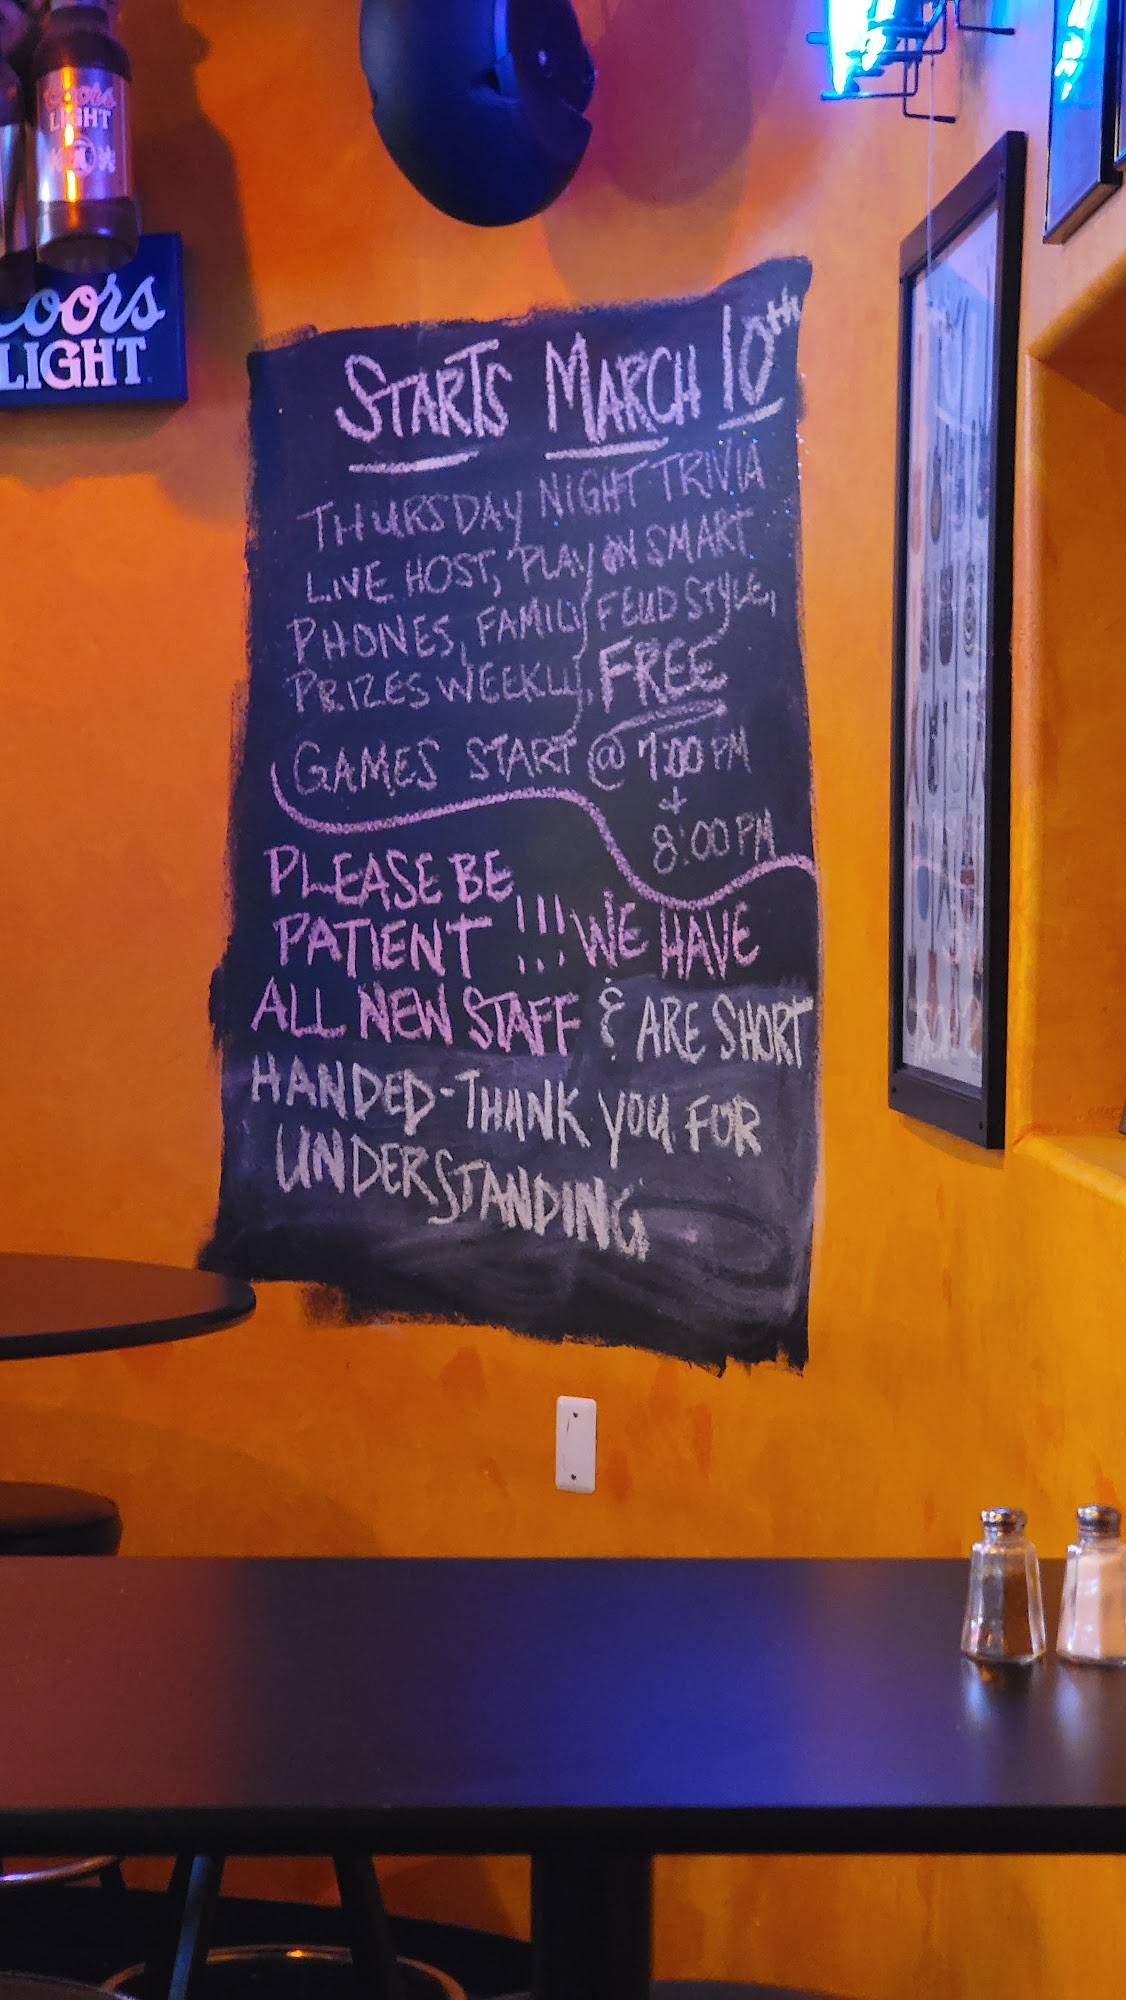 Coors
LIGHT
Coors
LIGHT
STARTS MARCH 10TH
THURSDAY NIGHT TRIVIA
LIVE HOST, PLAY ON SMART
PHONES, FAMILY FEUD STYLE,
PRIZES WEEKLY, FREE
GAMES START @ 7:00 PM
+
8:00 PM
PLEASE BE
PATIENT !!! WE HAVE
ALL NEW STAFF & ARE SHORT
HANDED - THANK YOU FOR
UNDERSTANDING